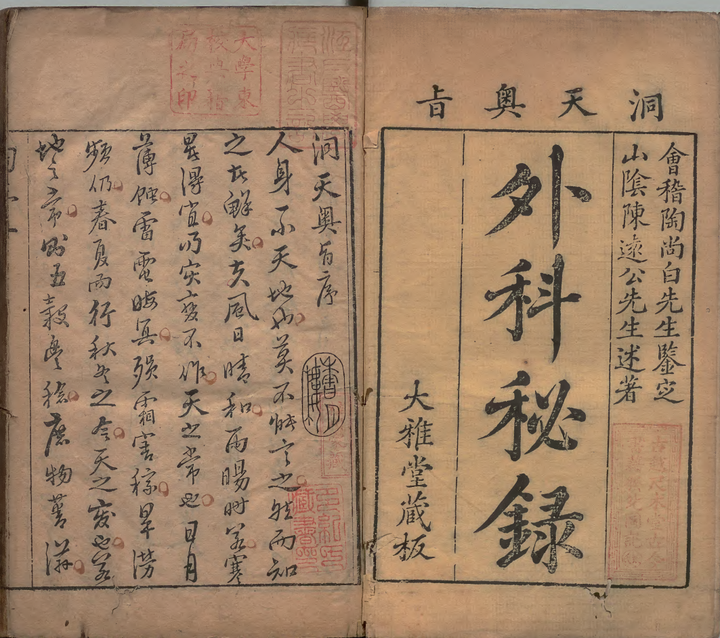 洞天奧旨
會稽陶尚白先生鑒定
山陰陳遠公先生述著
外科秘錄
大雅堂藏板
大學東
校典籍
局之印
洞天奧旨序
人身一小天地也莫不能言之然而知
之者鮮矣夫風日晴和雨暘時若寒
暑得宜乃災變不作天之常也日月
薄蝕雷電晦冥殞霜害稼旱澇
頻仍春夏而行秋冬之令天之變也若
地之常則五穀豐稔庶物蕃滋